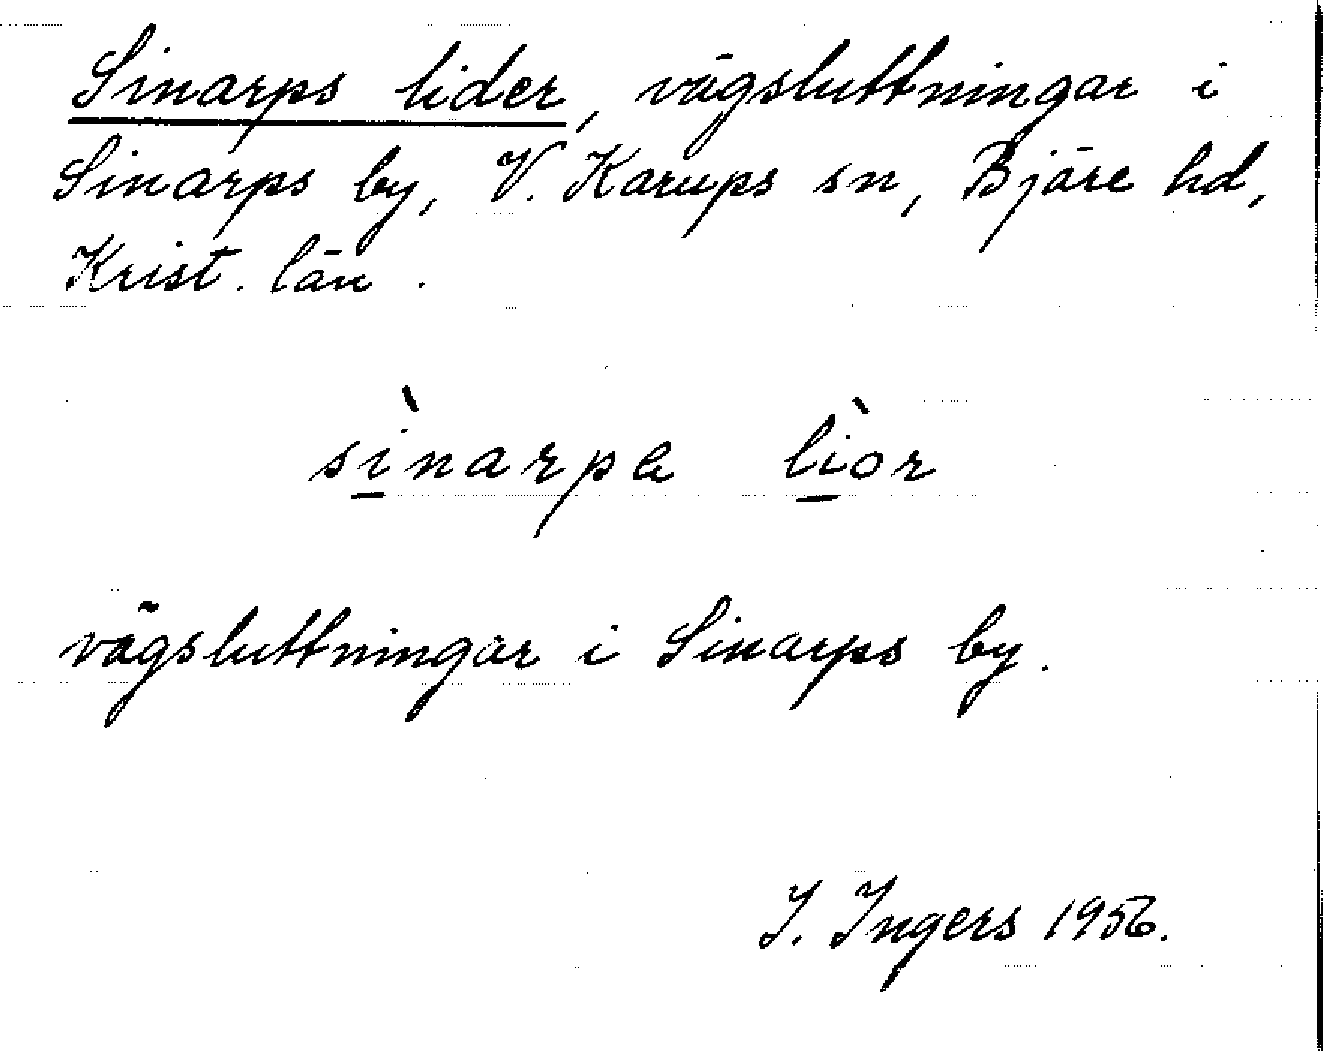 Sinarps lider, vägsluttningar i
Sinarps by, V. Karups sn, Bjäre hd,
Krist. län.
sìnarpa lìor
vägsluttningar i Sinarps by.
I. Ingers 1956.